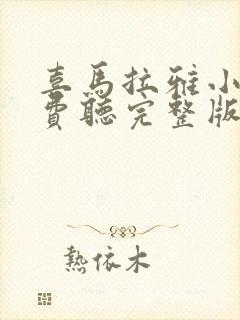 喜馬拉雅小
費聽完整版
熱依木